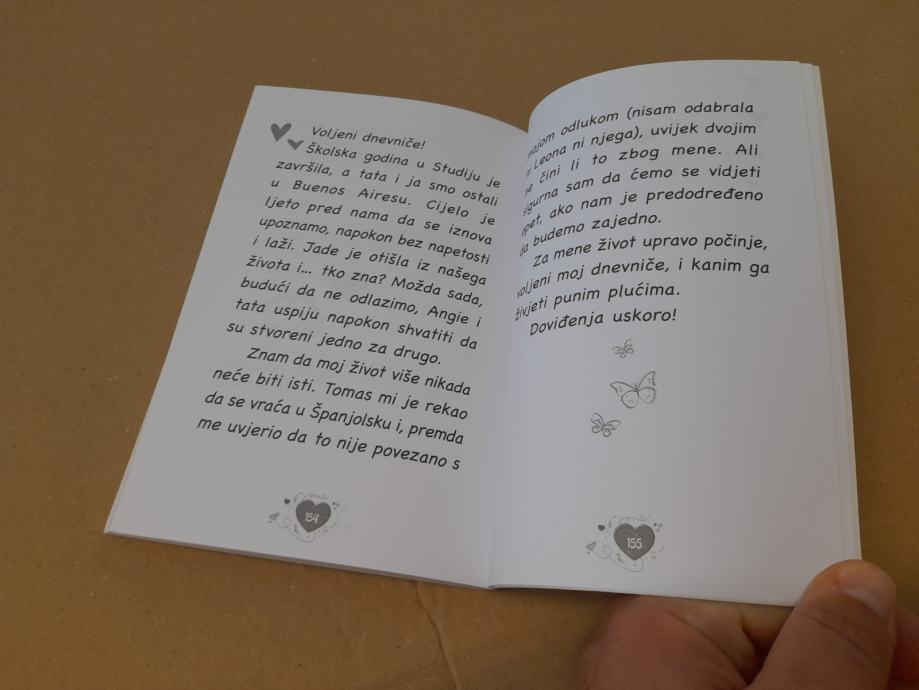 Voljeni dnevniče!
Školska godina u Studiju je
završila, a tata i ja smo ostali
u Buenos Airesu. Cijelo je
ljeto pred nama da se iznova
upoznamo, napokon bez napetosti
i laži. Jade je otišla iz našega
života i... tko zna? Možda sada,
budući da ne odlazimo, Angie i
tata uspiju napokon shvatiti da
su stvoreni jedno za drugo.
Znam da moj život više nikada
neće biti isti. Tomas mi je rekao
da se vraća u Španjolsku i, premda
me uvjerio da to nije povezano s
154
mojom odlukom (nisam odabrala
ni Leona ni njega), uvijek dvojim
ne čini li to zbog mene. Ali
sigurna sam da ćemo se vidjeti
opet, ako nam je predodređeno
da budemo zajedno.
Za mene život upravo počinje,
voljeni moj dnevniče, i kanim ga
živjeti punim plućima.
Doviđenja uskoro!
155